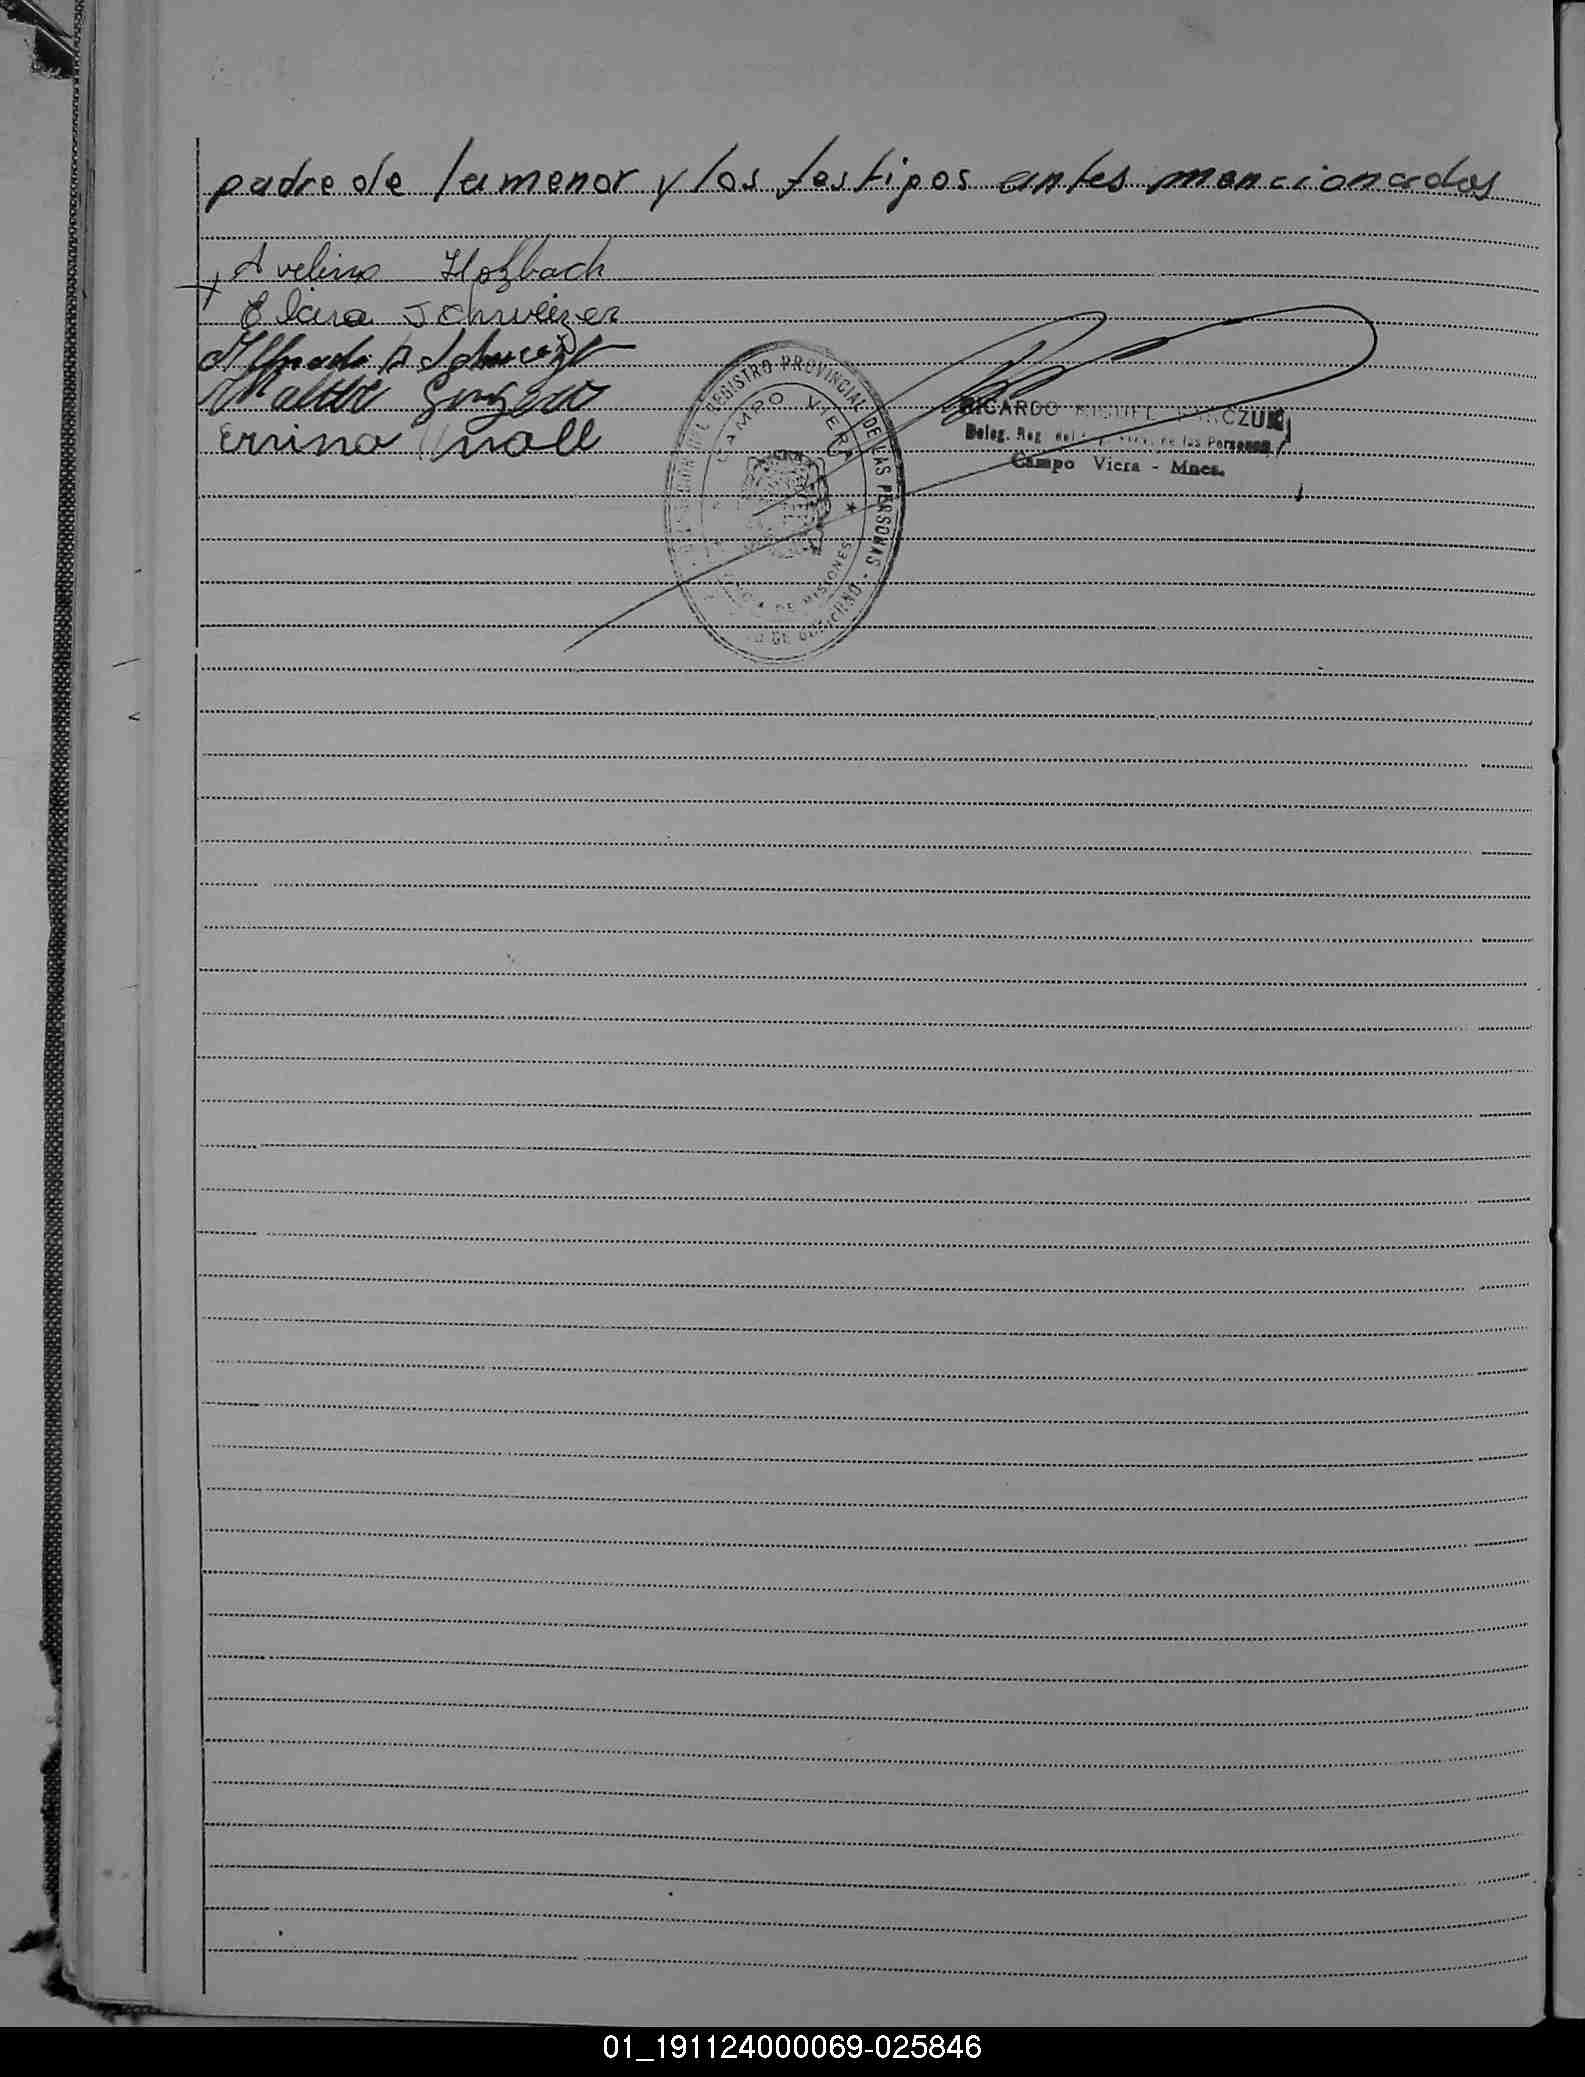 padre de la menor y los testigos antes mencionados
Avelino Holzbach
Elaira Schweizer
Schweizer
Walter
Ernino Knoll
REGISTRO PROVINCIAL DE LAS PERSONAS
CAMPO VIERA
DE MISIONES
DE GOBIERNO
RICARDO MIGUEL
Deleg. Reg. de las Personas
Campo Viera - Mnes.
01_191124000069-025846